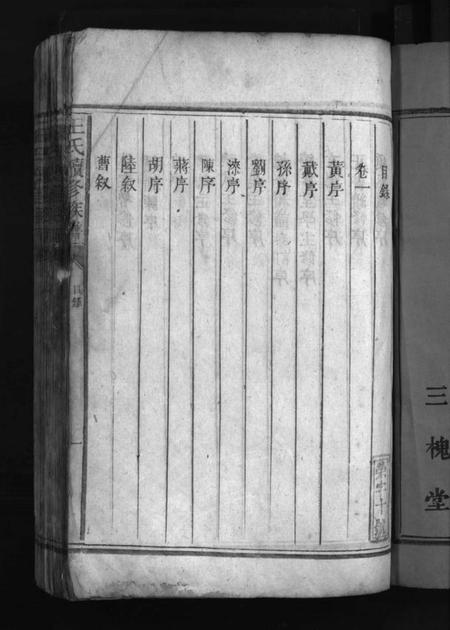 三槐堂
目錄
卷一
黃序
戴序
孫序
劉序
滦序
陳序
蔣序
胡序
陸敘
曹敘
王氏續修族譜
目錄
一